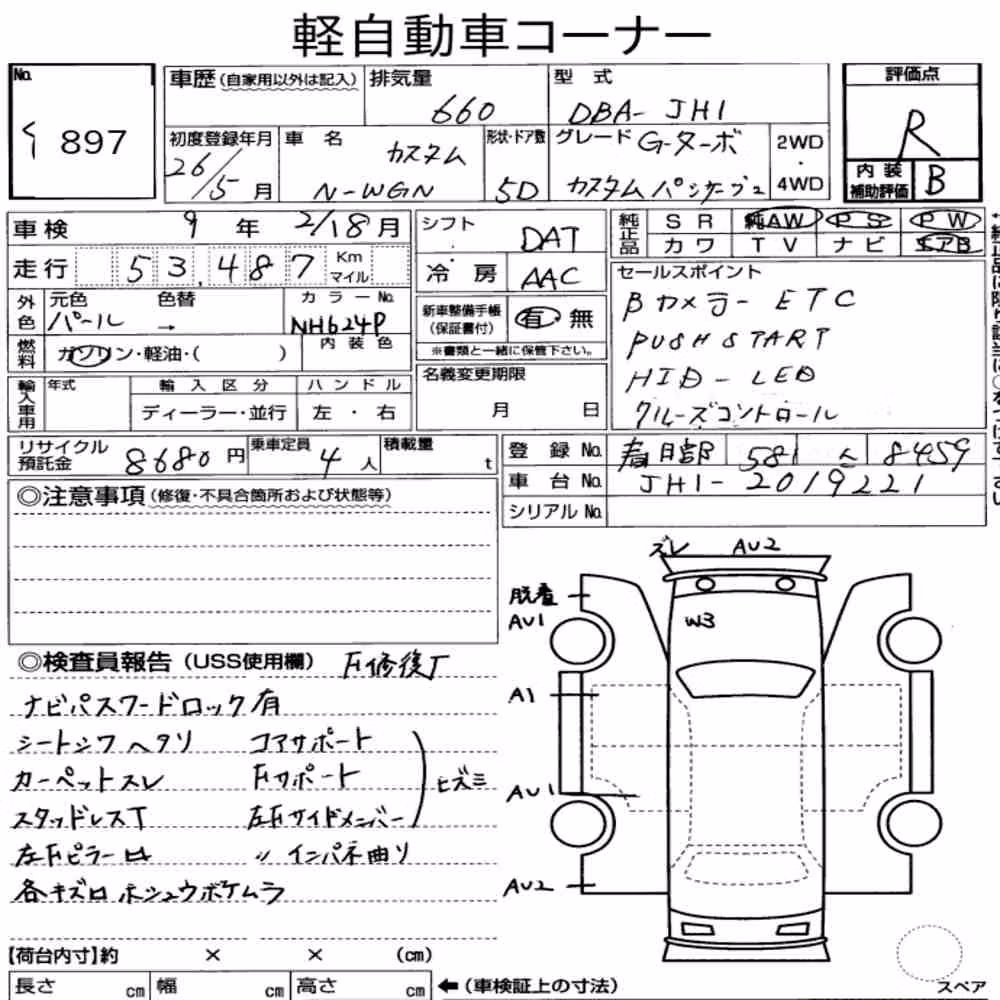 軽自動車コーナー
No.
897
車歴 (自家用以外は記入)
排気量
660
型式
DBA- JH1
評価点
R
初度登録年月
26/5月
車名
カスタム
N-WGN
形状・ドア数
5D
グレード G-ターボ
カスタム
2WD
・
4WD
内装
補助評価
B
車検 9年 2/18月
シフト
DAT
純正品
SR 純AW PS PW
カワ TV ナビ エアB
走行 53,487 Km
マイル
冷房 AAC
セールスポイント
Bカメラー ETC
PUSH START
HID - LED
クルーズコントロール
外色
元色
パール →
色替
カラーNo.
NH624P
新車整備手帳
(保証書付)
有・無
※書類と一緒に保管下さい。
燃料
ガソリン・軽油・( )
内装色
名義変更期限
月 日
輸入車用
年式
輸入区分
ディーラー・並行
ハンドル
左・右
リサイクル
預託金
8680円
乗車定員
4人
積載量
t
登録No. 春日部 581 8459
車台No. JH1- 2019221
シリアルNo.
◎注意事項 (修復・不具合箇所および状態等)
◎検査員報告 (USS使用欄) F修復T
ナビパスワードロック有
シートシワヘタリ コアサポート
カーペットスレ Fサポート
ヒズミ
スタッドレスT 左Fサイドメンバー
左Fピラー凹 〃 インパネ曲リ
各キズ凹ホシュウボケムラ
ズレ AU2
脱着
AU1
W3
A1
AU1
AU2
【荷台内寸】約 × × (cm)
長さ cm 幅 cm 高さ cm ←(車検証上の寸法)
スペア